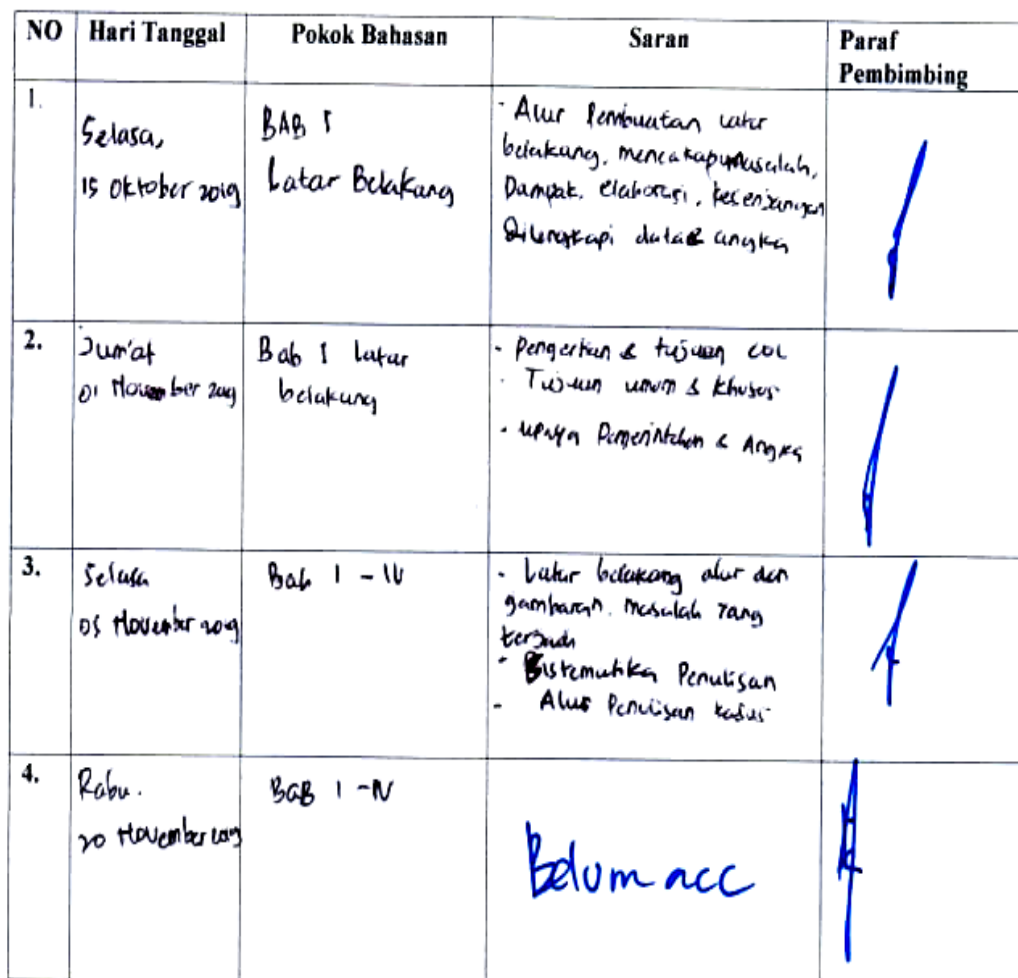 NO Hari Tanggal Pokok Bahasan Saran Paraf
Pembimbing
1.
Selasa,
15 Oktober 2019
BAB I
Latar Belakang
- Alur Pembuatan Latar
belakang, mencakup masalah,
Dampak, elaborasi, kesenjangan
Dilengkapi data & angka
2.
Jum'at
01 November 2019
Bab I Latar
belakang
- Pengertian & tujuan COC
- Tujuan umum & khusus
- upaya Pemerintahan & Angka
3.
Selasa
05 November 2019
Bab I - IV
- Latar belakang alur dan
gambaran masalah yang
terjadi
- Sistematika Penulisan
- Alur Penulisan kasus
4.
Rabu.
20 November 2019
BAB I - IV
Belum acc